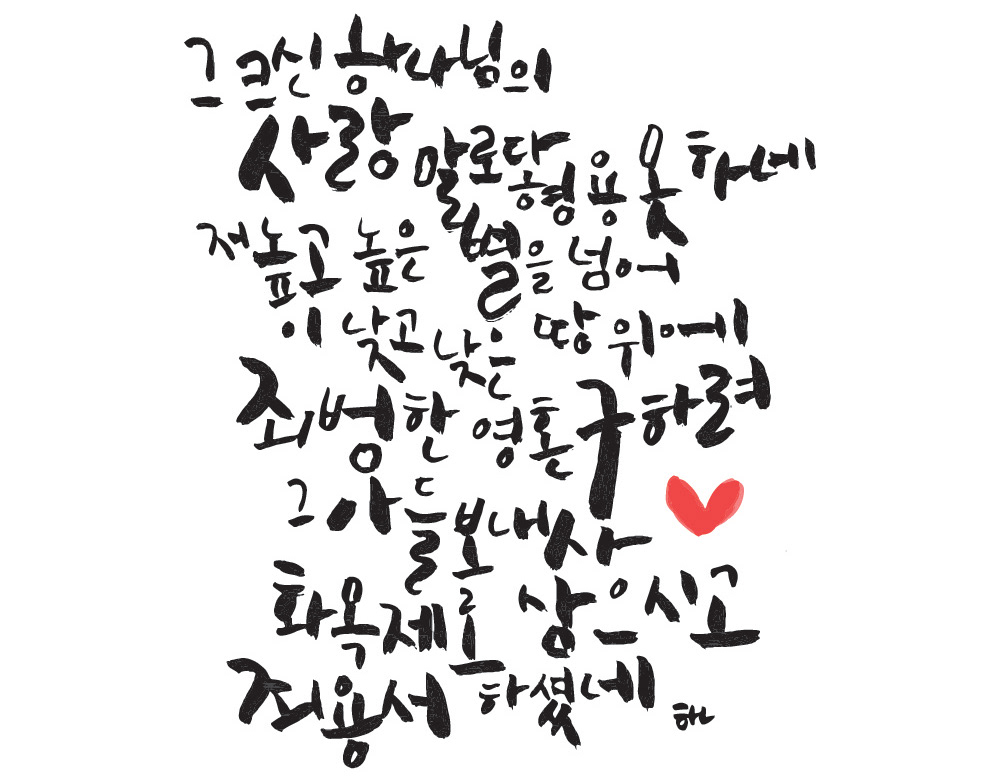 그 크신 하나님의
사랑 말로 다 형용 못 하네
저 높고 높은 별을 넘어
이 낮고 낮은 땅 위에
죄 범한 영혼 구하려
그 아들 보내사
화목제로 삼으시고
죄 용서 하셨네